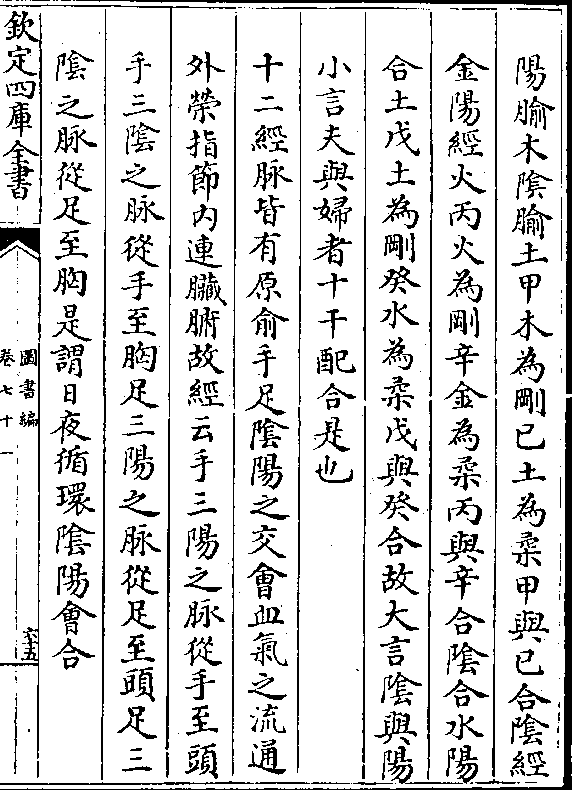 陽腧木隂腧土甲木為剛已土為柔甲與已合隂經
金陽經火丙火為剛辛金為柔丙與辛合陰合水陽
合土戊土為剛癸水為柔戊與癸合故大言陰與陽
小言夫與婦者十干配合是也
十二經脉皆有原俞手足陰陽之交會血氣之流通
外榮指節内連臟腑故經云手三陽之脉從手至頭
手三陰之脉從手至胸足三陽之脉從足至頭足三
陰之脉從足至胸是謂日夜循環陰陽會合
欽定四庫全書
圖書編
卷七十一
六十五